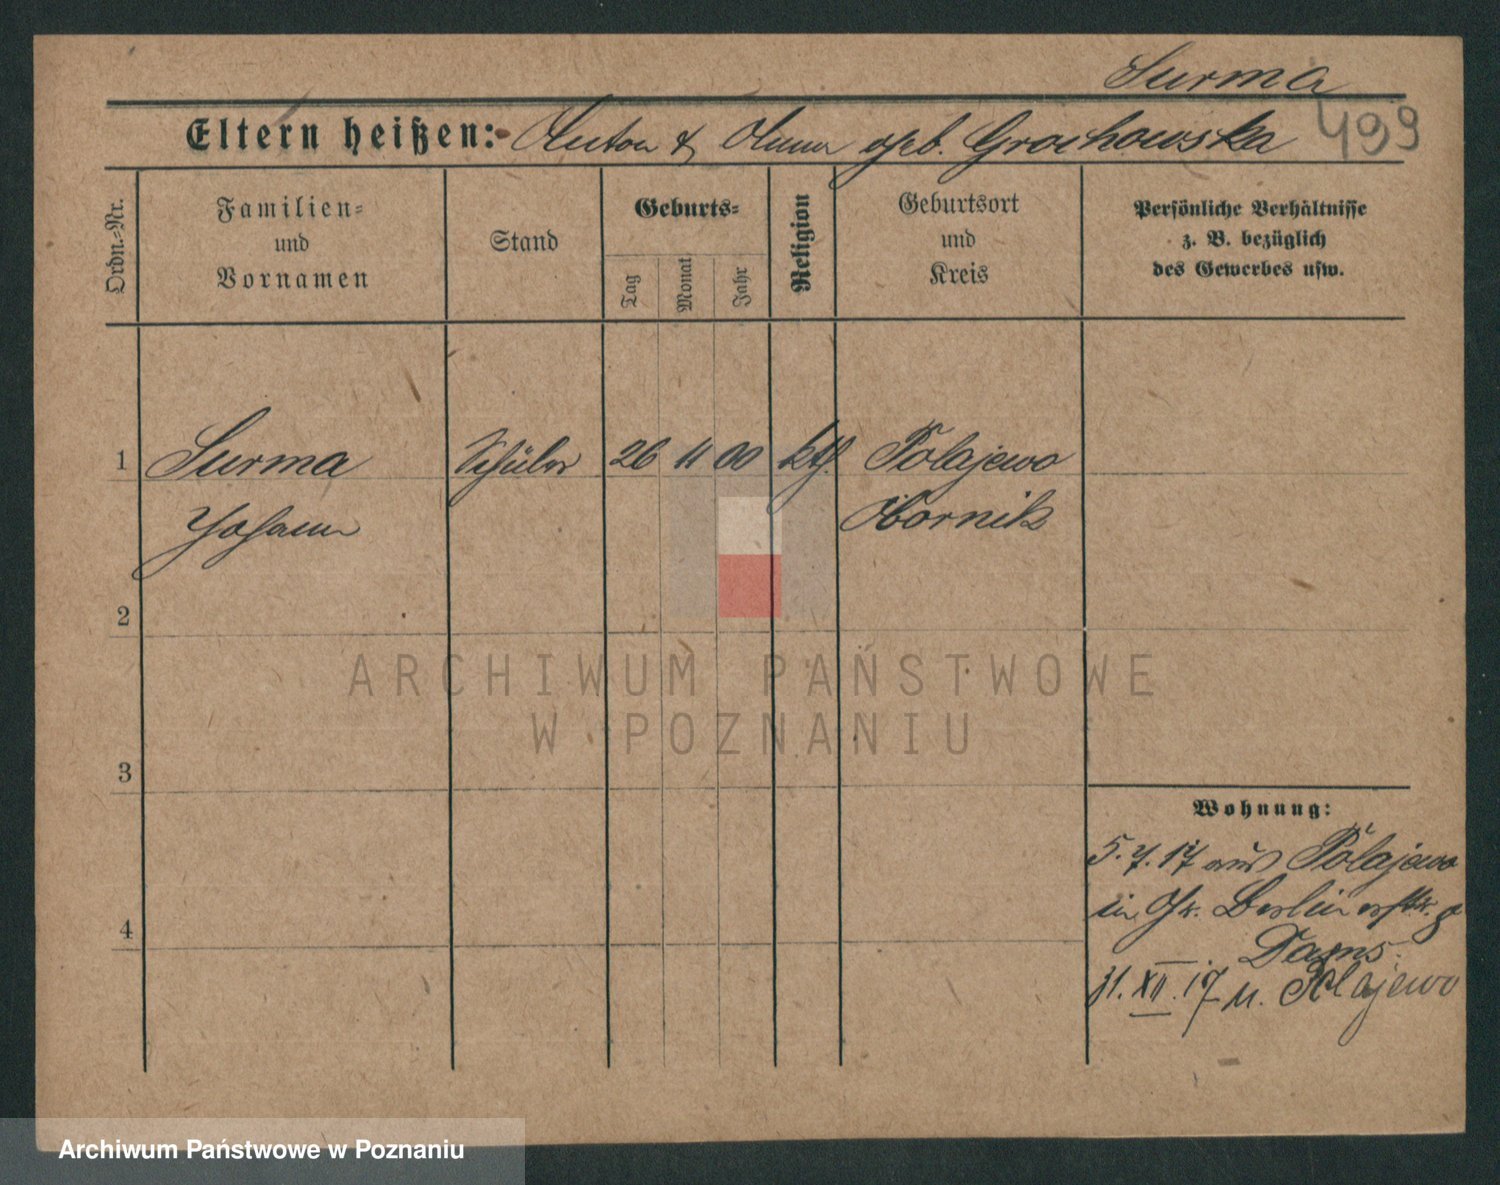 Surma
499
Eltern heißen: Anton & Anna geb. Grochowska
Ordn.-Nr.
Familien-
und
Vornamen
Stand
Geburts-
Tag
Monat
Jahr
Religion
Geburtsort
und
Kreis
Persönliche Verhältnisse
z. B. bezüglich
des Gewerbes usw.
1 Surma Schüler 26 11 00 kth. Polajewo
Johann Obornik
2
3
4
Wohnung:
5.7.17 aus Polajewo
in Berlin
31.XII.17 n. Polajewo
ARCHIWUM PAŃSTWOWE
W POZNANIU
Archiwum Państwowe w Poznaniu